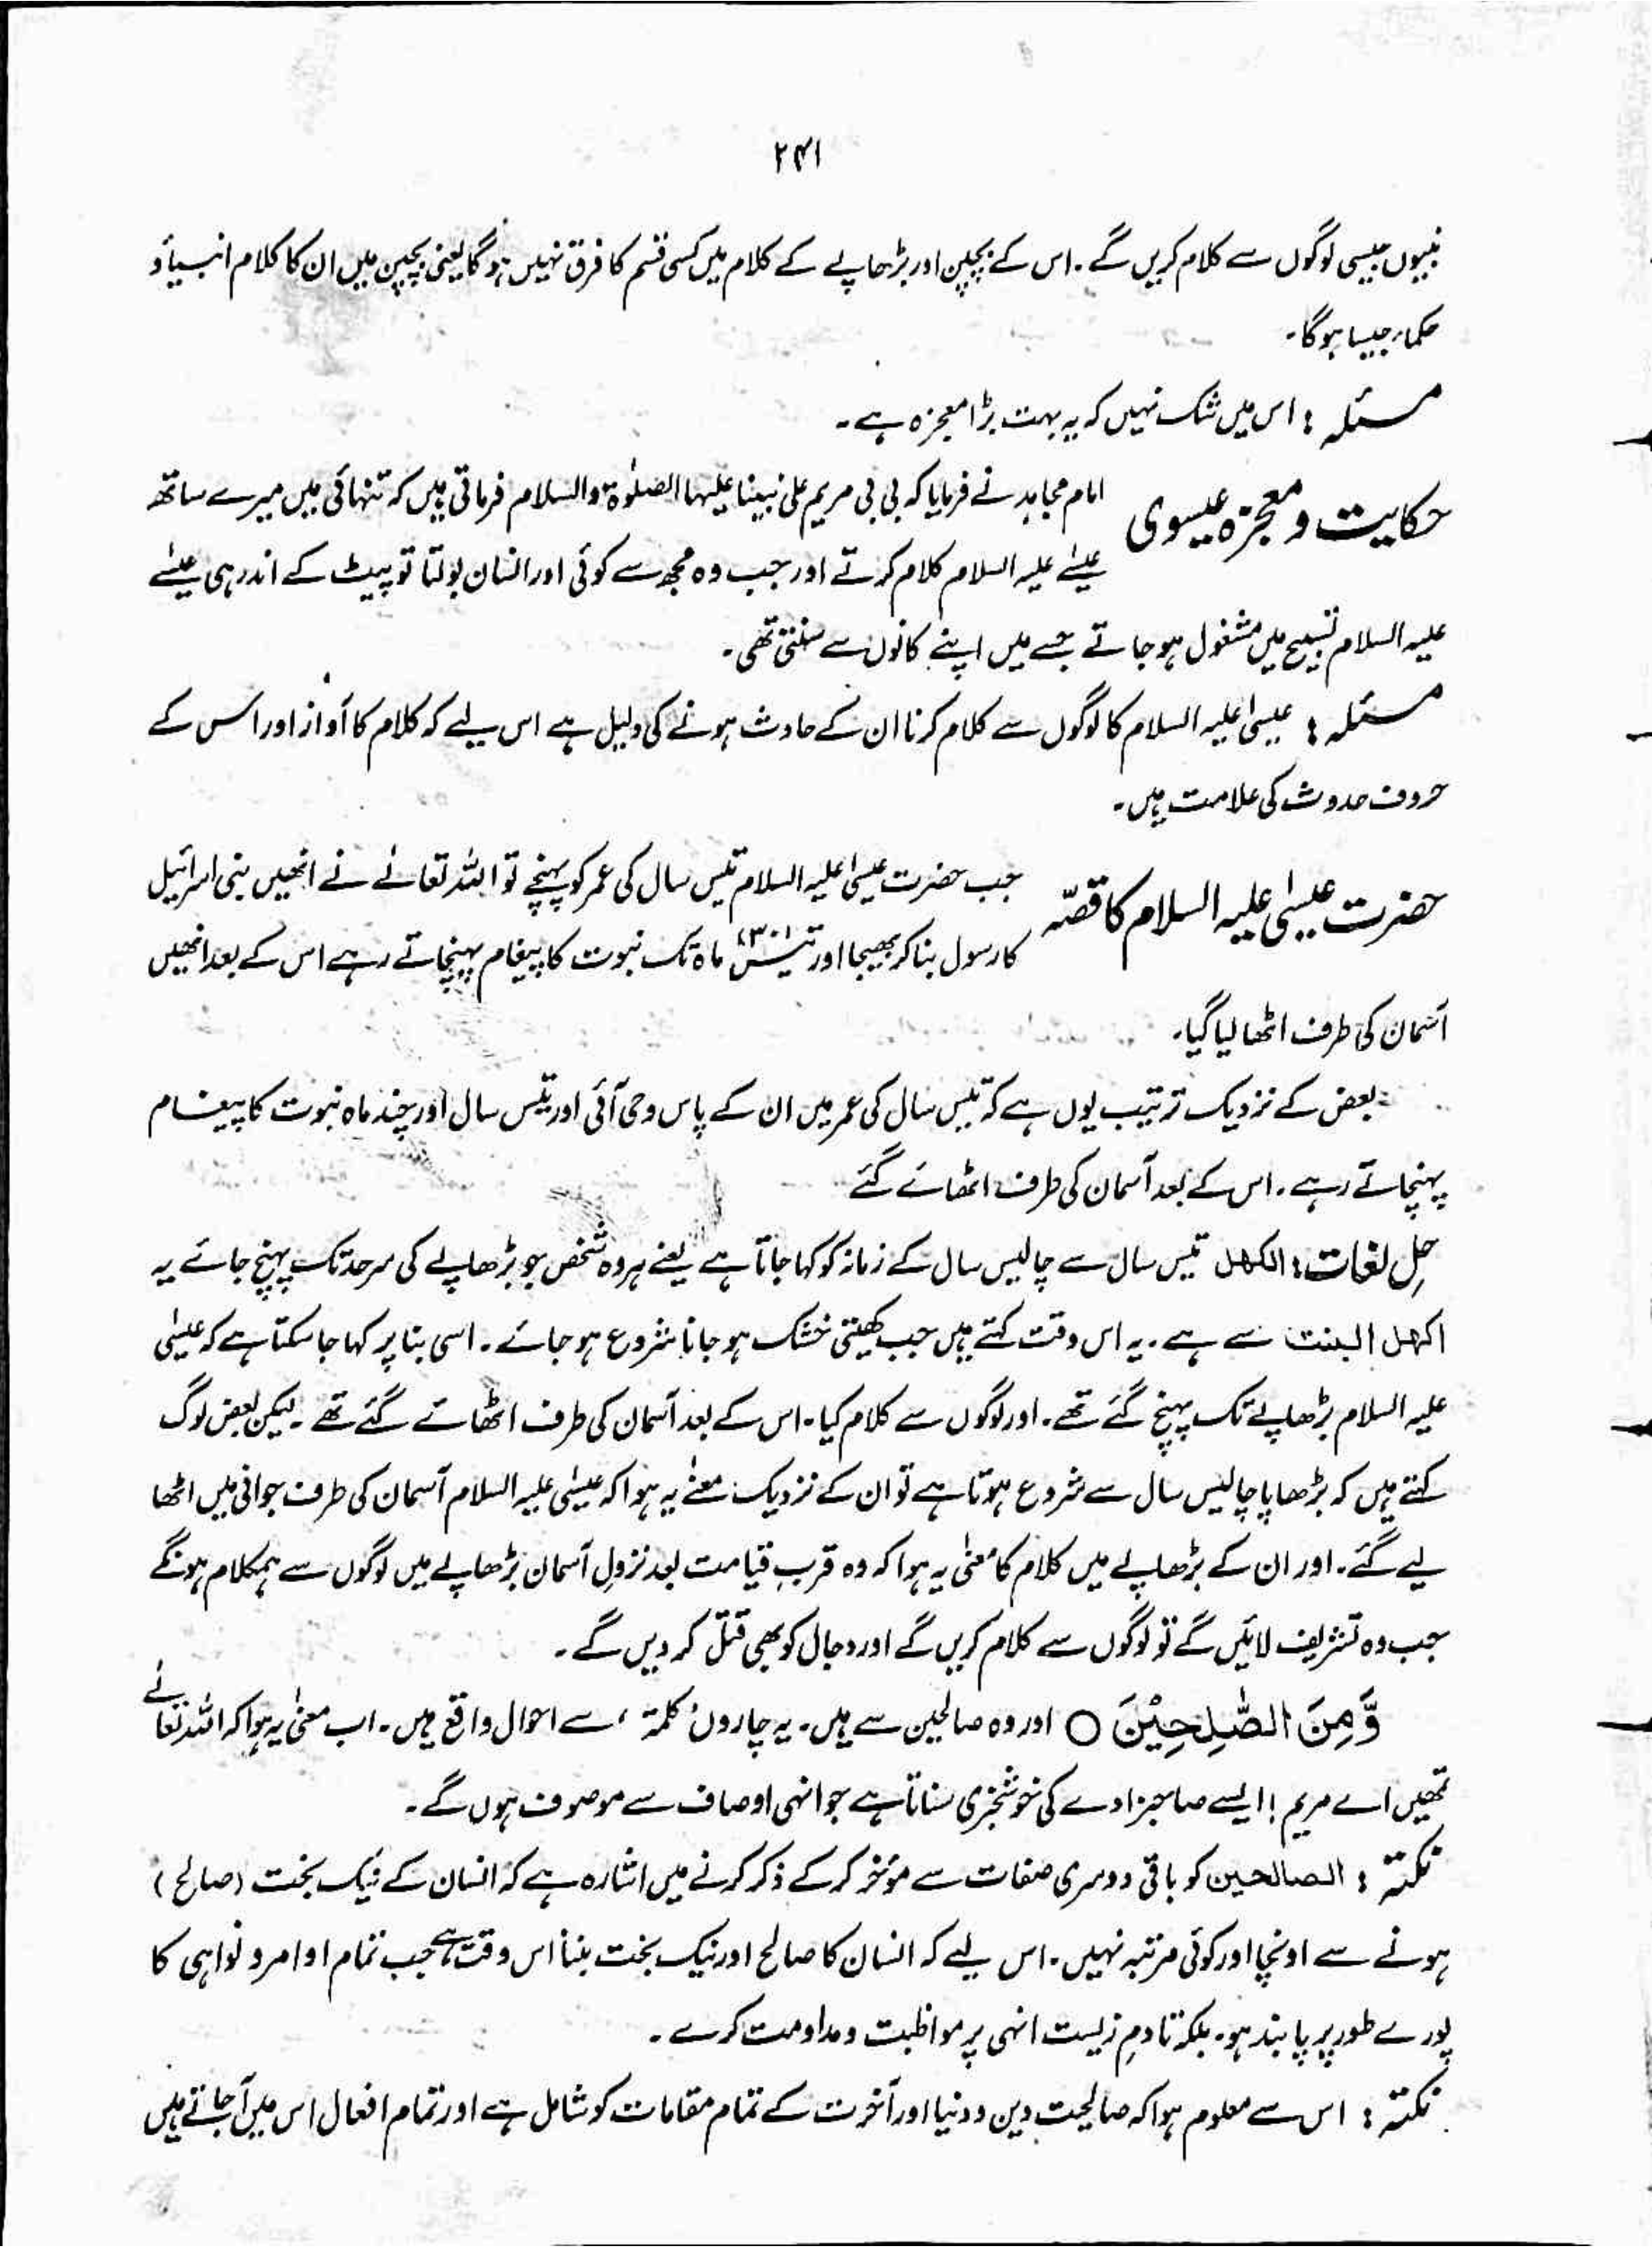 ۲۴۱
نبیوں جیسی لوگوں سے کلام کریں گے ۔ اس کے بچپن اور بڑھاپے کے کلام میں کسی قسم کا فرق نہیں ہوگا یعنی بچپن میں ان کا کلام انبیاؑ و
حکماء جیسا ہوگا۔
مسئلہ : اس میں شک نہیں کہ یہ بہت بڑا معجزہ ہے ۔
حکایت و معجزہ عیسوی امام مجاہد نے فرمایا کہ بی بی مریم علی نبینا علیہا الصلوٰۃ والسلام فرماتی ہیں کہ تنہائی میں میرے ساتھ
عیسٰے علیہ السلام کلام کرتے اور جب وہ مجھ سے کوئی اور انسان بولتا تو پیٹ کے اندر ہی عیسٰے
علیہ السلام تسبیح میں مشغول ہو جاتے جسے میں اپنے کانوں سے سنتی تھی۔
مسئلہ : عیسیٰ علیہ السلام کا لوگوں سے کلام کرنا ان کے حادث ہونے کی دلیل ہے اس لیے کہ کلام کا آواز اور اس کے
حروف حدوث کی علامت ہیں۔
حضرت عیسٰی علیہ السلام کا قصّہ جب حضرت عیسیٰ علیہ السلام تیس سال کی عمر کو پہنچے تو اللہ تعالےٰ نے انھیں بنی اسرائیل
کا رسول بنا کر بھیجا اور تیس (۳۰) ماہ تک نبوت کا پیغام پہنچاتے رہے اس کے بعد انھیں
آسمان کی طرف اٹھا لیا گیا۔
بعض کے نزدیک ترتیب یوں ہے کہ تیس سال کی عمر میں ان کے پاس وحی آئی اور تیس سال اور چند ماہ نبوت کا پیغام
پہنچاتے رہے ۔ اس کے بعد آسمان کی طرف اٹھائے گئے
حلِ لغات : الکھل تیس سال سے چالیس سال کے زمانہ کو کہا جاتا ہے یعنے ہر وہ شخص جو بڑھاپے کی سرحد تک پہنچ جائے یہ
اکھل البنت سے ہے ۔ یہ اس وقت کہتے ہیں جب کھیتی خشک ہو جانا شروع ہو جائے ۔ اسی بنا پر کہا جا سکتا ہے کہ عیسٰی
علیہ السلام بڑھاپے تک پہنچ گئے تھے ۔ اور لوگوں سے کلام کیا ۔ اس کے بعد آسمان کی طرف اٹھائے گئے تھے ۔ لیکن بعض لوگ
کہتے ہیں کہ بڑھاپا چالیس سال سے شروع ہوتا ہے تو ان کے نزدیک معنے یہ ہوا کہ عیسیٰ علیہ السلام آسمان کی طرف جوانی میں اٹھا
لیے گئے ۔ اور ان کے بڑھاپے میں کلام کا معنیٰ یہ ہوا کہ وہ قربِ قیامت بعد نزولِ آسمان بڑھاپے میں لوگوں سے ہمکلام ہونگے
جب وہ تشریف لائیں گے تو لوگوں سے کلام کریں گے اور دجال کو بھی قتل کر دیں گے ۔
وَّمِنَ الصّٰلِحِیْنَ ○ اور وہ صالحین سے ہیں ۔ یہ چاروں کلمۃ ، سے احوال واقع ہیں ۔ اب معنیٰ یہ ہوا کہ اللہ تعالےٰ
تمھیں اے مریم ! ایسے صاحبزادے کی خوشخبری سناتا ہے جو انہی اوصاف سے موصوف ہوں گے ۔
نکتہ : الصالحین کو باقی دوسری صفات سے مؤخر کر کے ذکر کرنے میں اشارہ ہے کہ انسان کے نیک بخت (صالح)
ہونے سے اونچا اور کوئی مرتبہ نہیں ۔ اس لیے کہ انسان کا صالح اور نیک بخت بننا اس وقت ہے جب تمام اوامر و نواہی کا
پورے طور پر پابند ہو۔ بلکہ تادمِ زیست انہی پر مواظبت و مداومت کرے ۔
نکتہ : اس سے معلوم ہوا کہ صالحیت دین و دنیا اور آخرت کے تمام مقامات کو شامل ہے اور تمام افعال اس میں آ جاتے ہیں